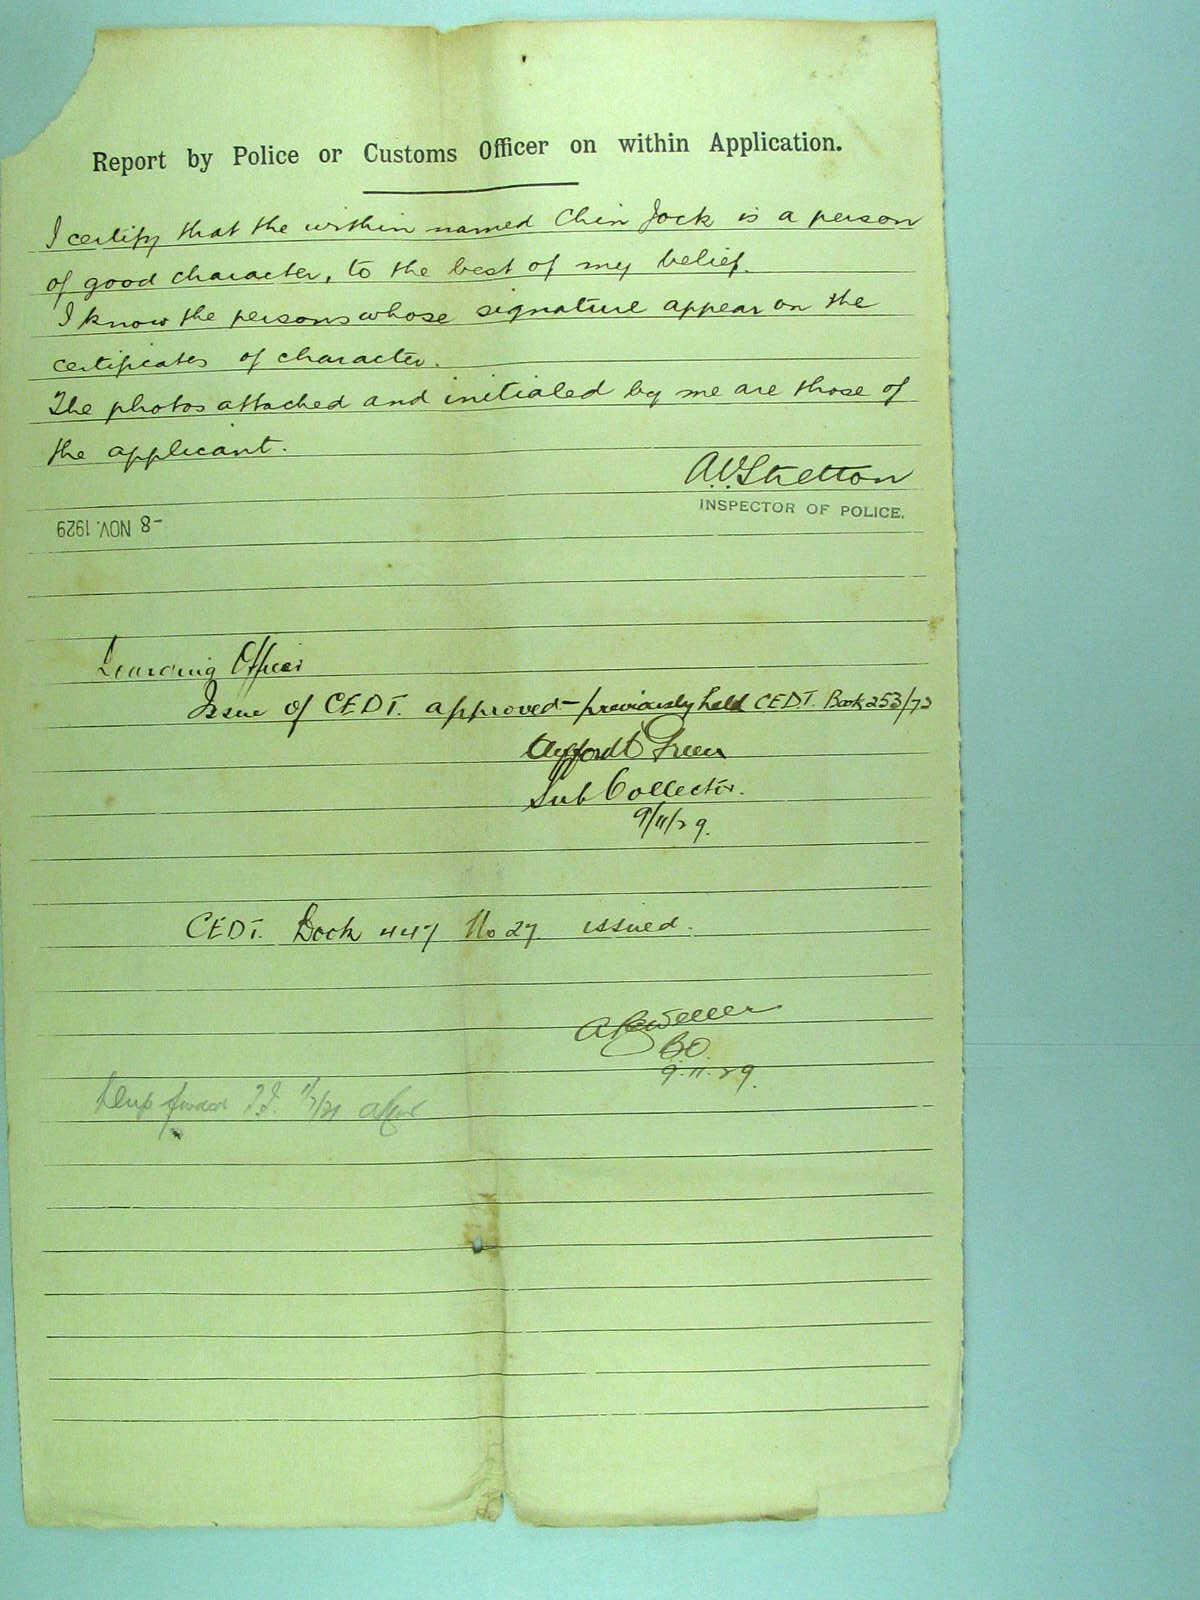 Report by Police or Customs Officer on within Application.
I certify that the within named Chin Jock is a person
of good character, to the best of my belief.
I know the persons whose signature appear on the
certificates of character.
The photos attached and initialed by me are those of
the applicant.
A.V. Stretton
INSPECTOR OF POLICE.
-8 NOV. 1929
Officer
Issue of CEDT. approved - previously held CEDT. Book 253/73
Green
Sub Collector.
9/11/29.
CEDT. Book 447 No 27 issued.
BO.
9.11.29.